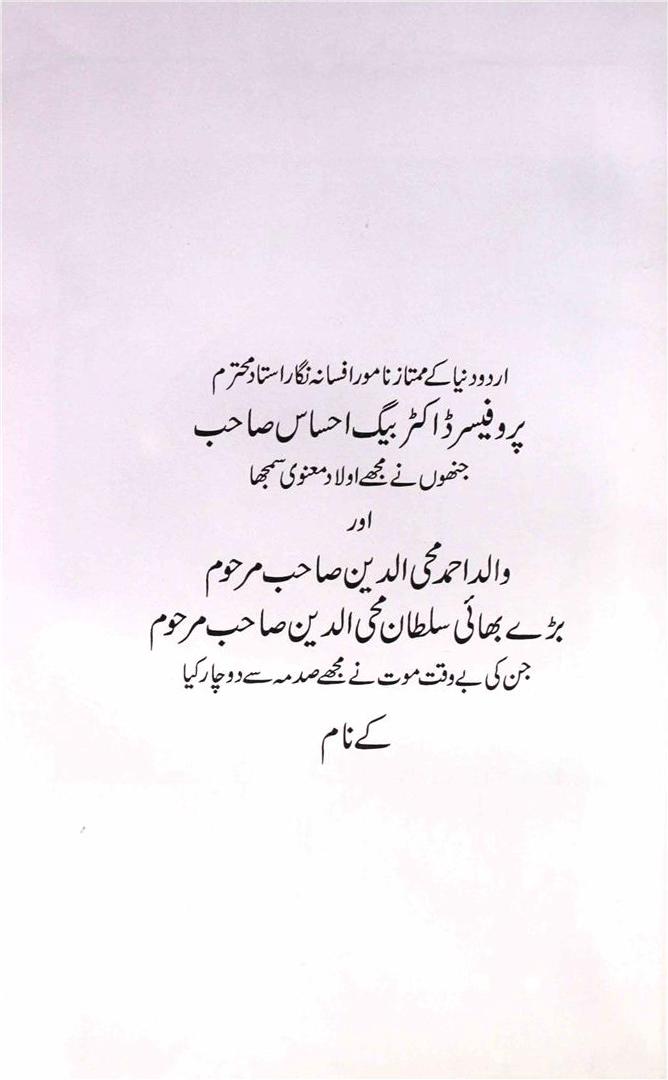 اردو دنیا کے ممتاز نامور افسانہ نگار استاد محترم
پروفیسر ڈاکٹر بیگ احساس صاحب
جنھوں نے مجھے اولاد معنوی سمجھا
اور
والد احمد محی الدین صاحب مرحوم
بڑے بھائی سلطان محی الدین صاحب مرحوم
جن کی بے وقت موت نے مجھے صدمہ سے دوچار کیا
کے نام